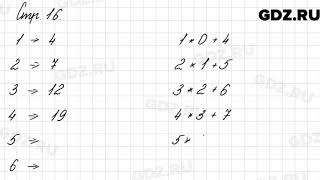 Стр 16
GDZ.RU
1 ⇒ 4 1 * 0 + 4
2 ⇒ 7 2 * 1 + 5
3 ⇒ 12 3 * 2 + 6
4 ⇒ 19 4 * 3 + 7
5 ⇒ 5 *
6 ⇒